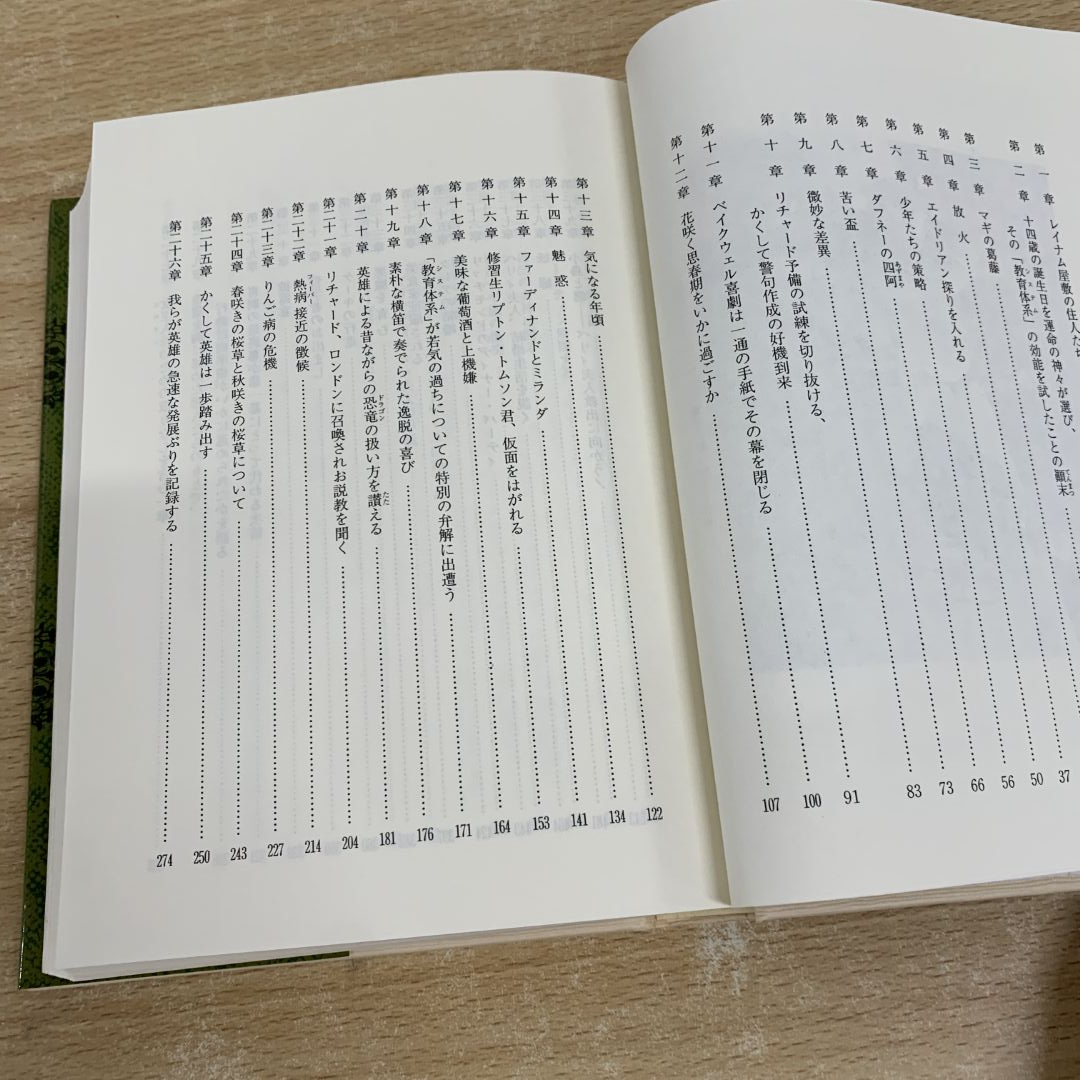 第一章 レイナム屋敷の住人たち
第二章 十四歳の誕生日を運命の神々が選び、
その「教育体系」の効能を試したことの顚末
システム
てんまつ
第三章 マギの葛藤
第四章 放火 37
第五章 エイドリアン探りを入れる 50
第六章 少年たちの策略 56
第七章 ダフネーの四阿 66
あずまや
第八章 苦い盃 73
第九章 微妙な差異 83
第十章 リチャード予備の試練を切り抜ける、
かくして警句作成の好機到来 91
第十一章 ベイクウェル喜劇は一通の手紙でその幕を閉じる 100
第十二章 花咲く思春期をいかに過ごすか 107
第十三章 気になる年頃 122
第十四章 魅惑 134
第十五章 ファーディナンドとミランダ 141
第十六章 修習生リプトン・トムソン君、仮面をはがれる 153
第十七章 美味な葡萄酒と上機嫌 164
第十八章 「教育体系」が若気の過ちについての特別の弁解に出遭う 171
システム
第十九章 素朴な横笛で奏でられた逸脱の喜び 176
第二十章 英雄による昔ながらの恐竜の扱い方を讃える 181
ドラゴン
たた
第二十一章 リチャード、ロンドンに召喚されお説教を聞く 204
第二十二章 熱病接近の徴候 214
フィーバー
第二十三章 りんご病の危機 227
第二十四章 春咲きの桜草と秋咲きの桜草について 243
第二十五章 かくして英雄は一歩踏み出す 250
第二十六章 我らが英雄の急速な発展ぶりを記録する 274